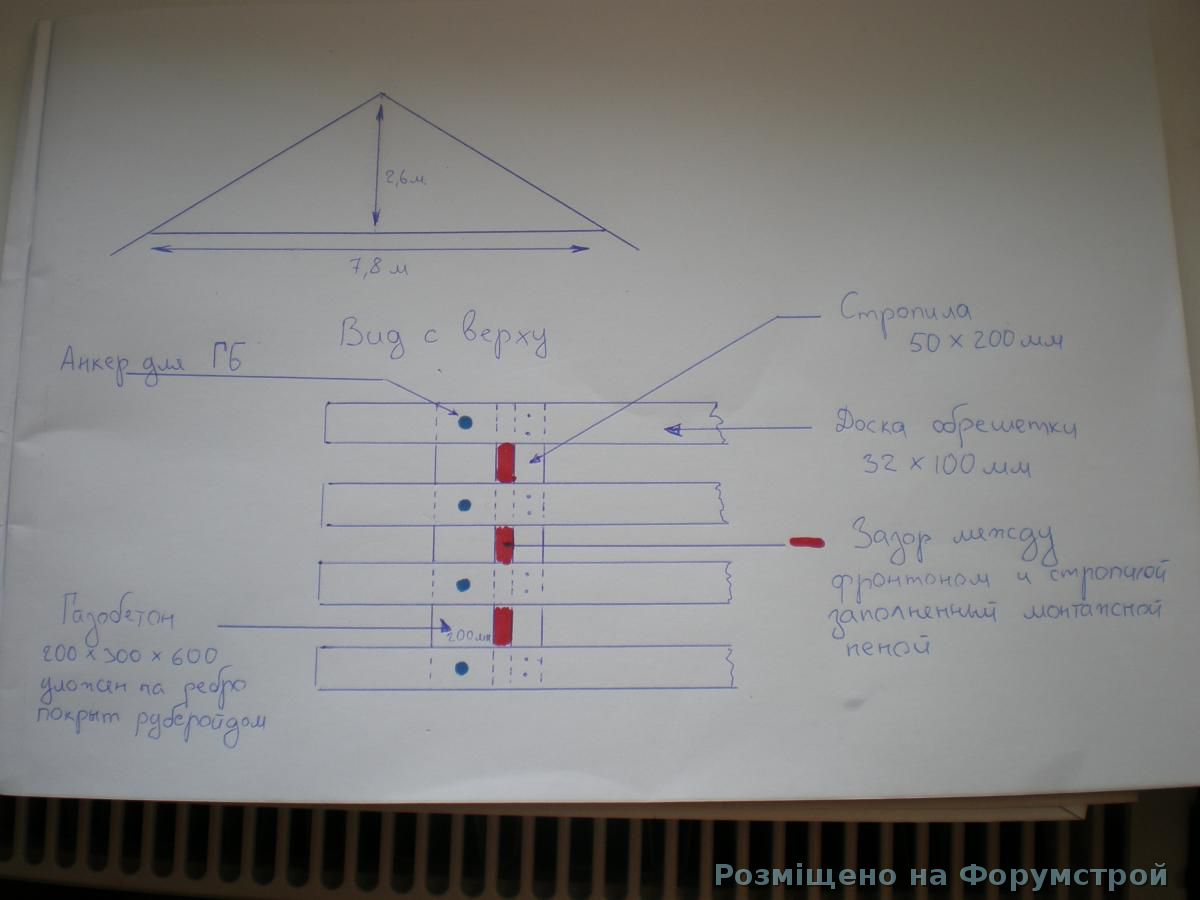 2,6 м.
7,8 м
Вид с верху
Анкер для ГБ
Стропила
50 × 200 мм
Доска обрешетки
32 × 100 мм
Зазор между
фронтоном и стропилой
заполненный монтажной
пеной
Газобетон
200 × 300 × 600
уложен на ребро
покрыт руберойдом
200мм
Розміщено на Форумстрой